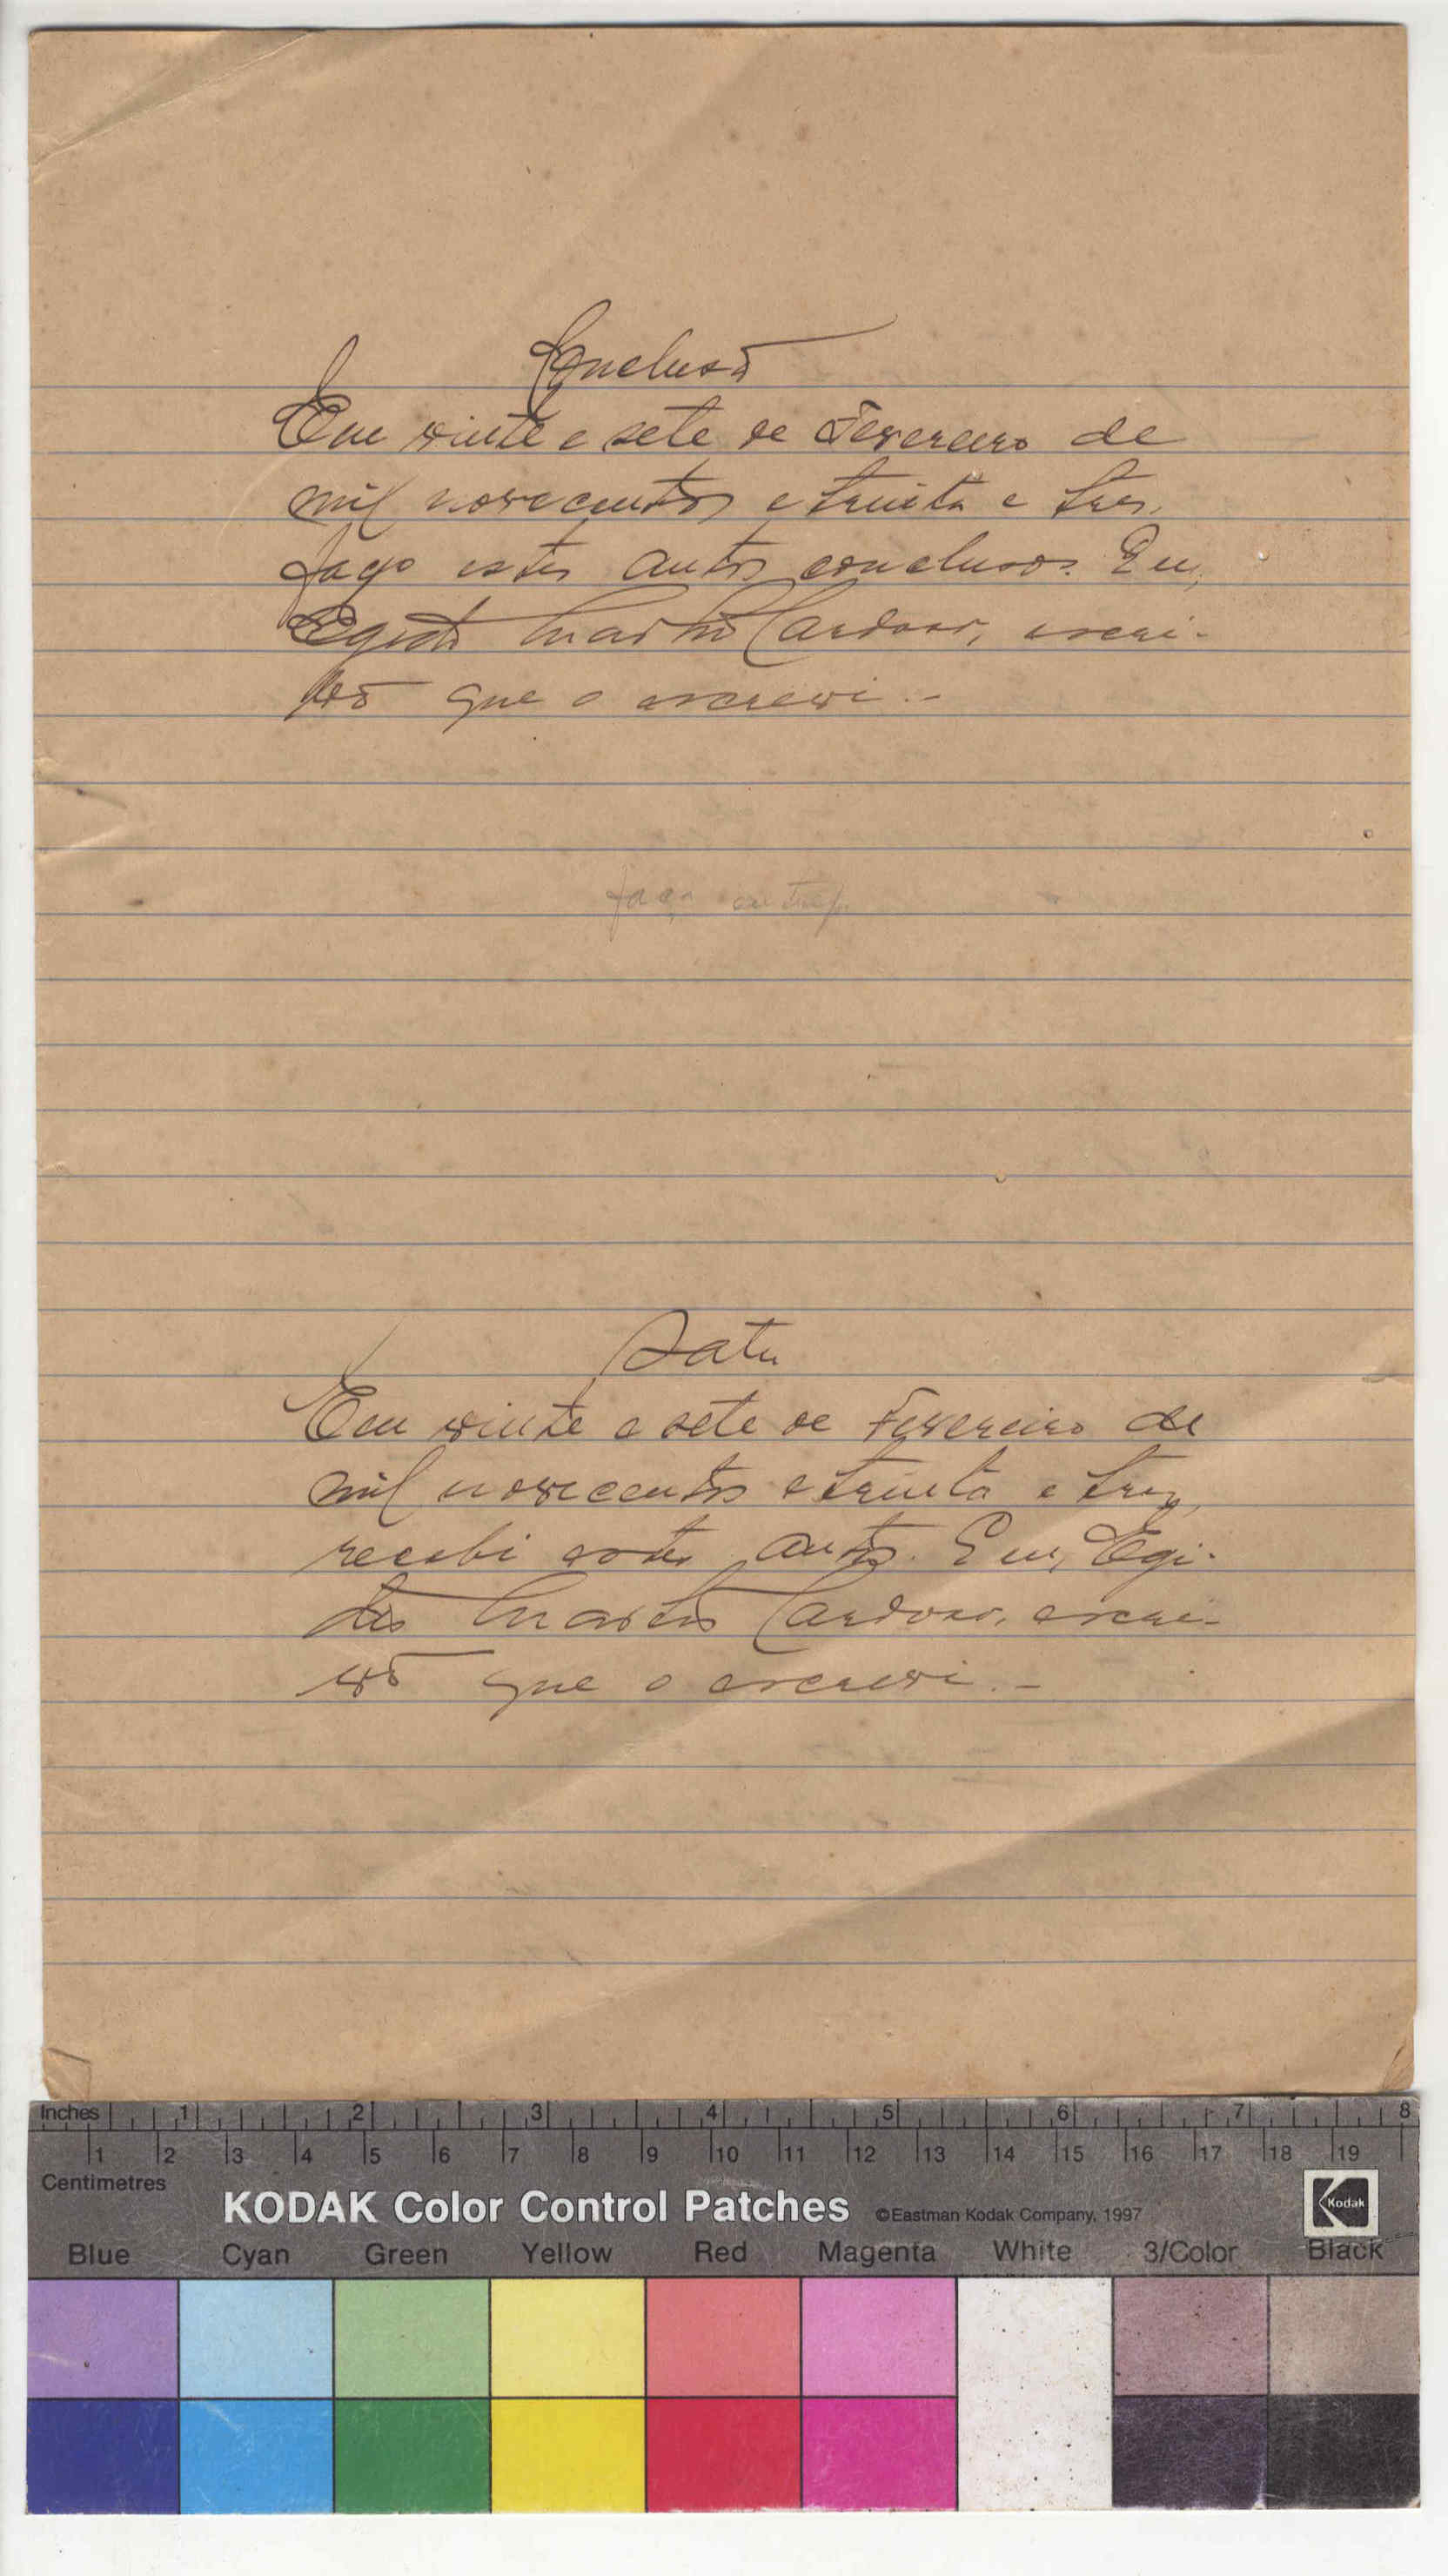 Conclusão
Em vinte e sete de Fevereiro de
mil novecentos e trinta e tres,
faço estes autos conclusos. Eu,
Egidio Martins Cardoso, escri-
vão que o escrevi. -
faça
Data
Em vinte e sete de Fevereiro de
mil novecentos e trinta e tres,
recebi estes autos. Eu, Egi-
dio Martins Cardoso, escri-
vão que o escrevi. -
Inches 1 2 3 4 5 6 7 8
1 2 3 4 5 6 7 8 9 10 11 12 13 14 15 16 17 18 19
Centimetres
KODAK Color Control Patches ©Eastman Kodak Company, 1997 Kodak
Blue Cyan Green Yellow Red Magenta White 3/Color Black